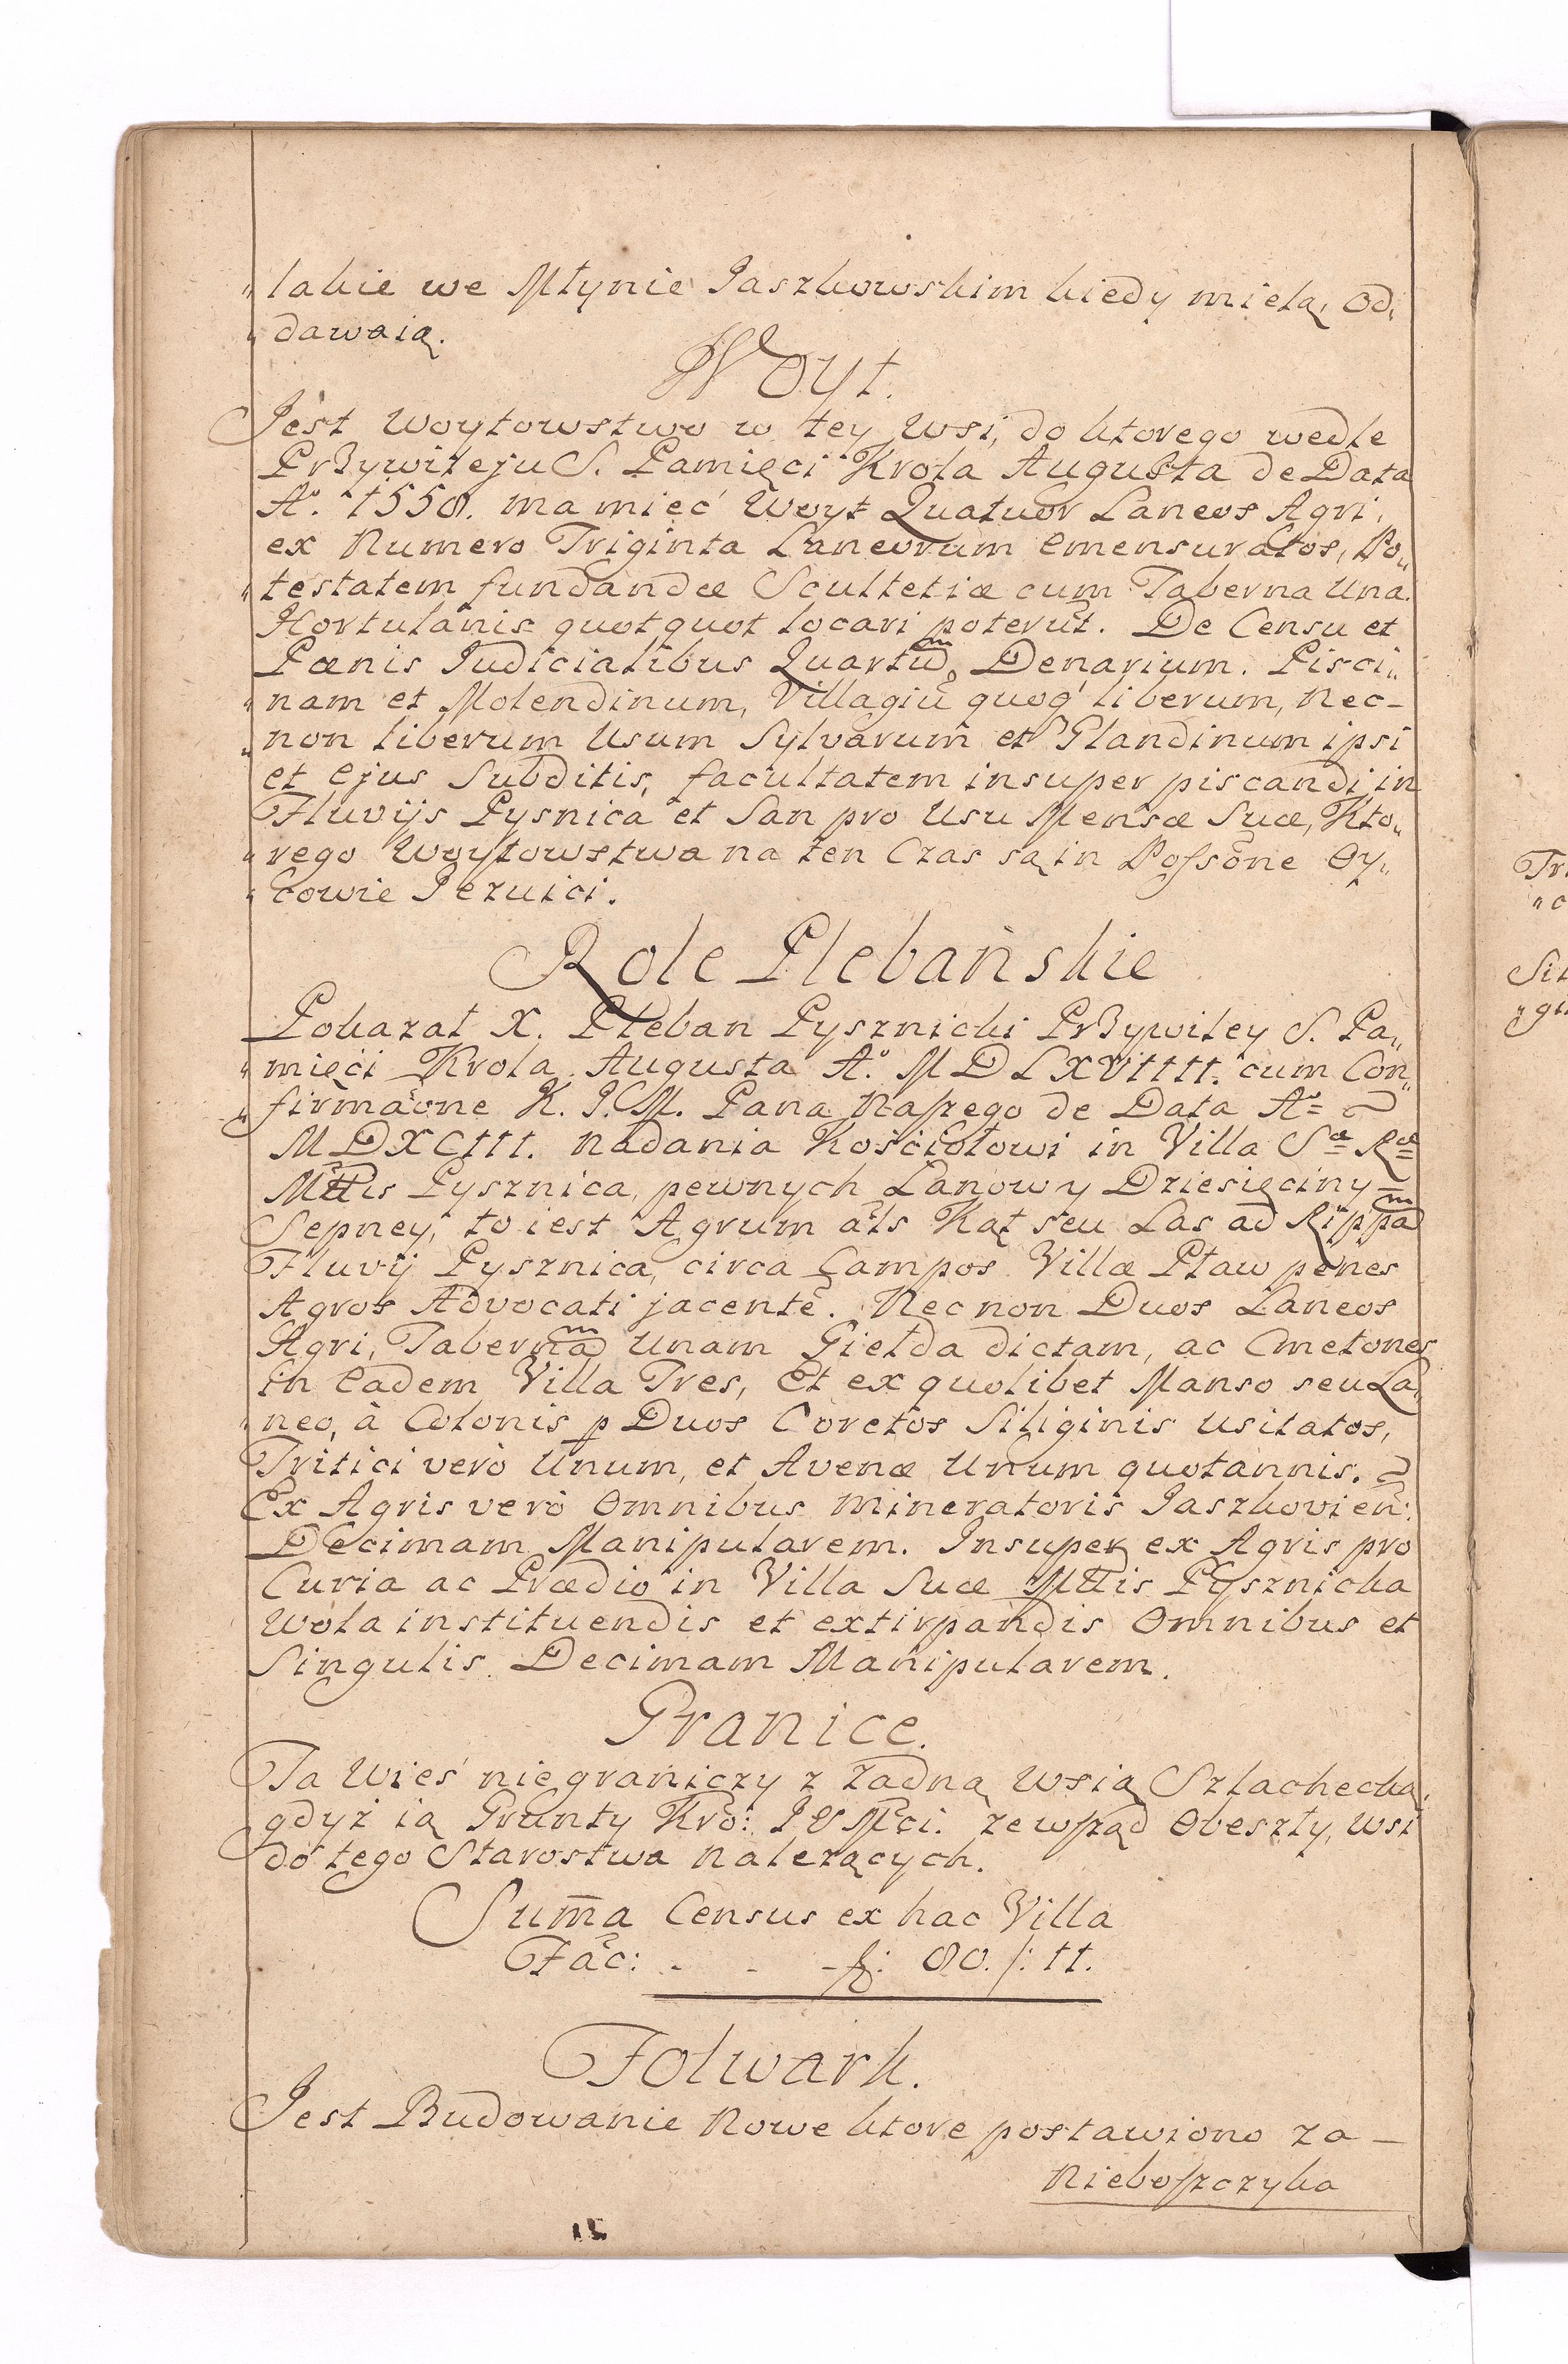 „ takie we Młynie Jaszkowskim kiedy mielą, Od„
„ dawaią.
Woyt.
Jest Woytowstwo w tey Wsi, do ktorego wedle
PrZywileju S. Pamięci Krola Augusta de Data
Aº. 1558. ma mieć Woyt Quatuor Laneos Agri,
ex Numero Triginta Laneorum emensuratos, Po„
„ testatem fundandæ Scultetiæ cum Taberna Una.
Hortulanis quotquot locari poterūt. De Censu et
Pœnis Judicialibus Quartū Denarium. Pisci„
„ nam et Molendinum, Villagiū quoq' liberum, Nec-
„ non liberum Usum Sylvarum et Glandinum ipsi
et Ejus Subditis, facultatem insuper piscandi in
Fluvijs Pysnica et San pro Usu Mensæ Suæ, Kto„
„ rego Woytowstwa na ten Czas są in Possõne Oy„
„ cowie Jezuici.
Role Plebańskie
Pokazał X. Pleban Pysznicki PrZywiley S. Pa„
„ mięci Krola Augusta Aº. MDLXVIIII. cum Con„
„ firmãone K. J. M. Pana Naszego de Data Aº=
MDXCIII. Nadania Kościołowi in Villa Sæ= Ræ=
Mttis Pysznica, pewnych Łanow y Dziesięciny
Sepney, to iest Agrum ał̃s Kąt seu Las ad Rippam
Fluvij Pysznica, circa Campos Villæ Pław penes
Agros Advocati jacentẽ. Nec non Duos Laneos
Agri, Tabernam Unam Giełda dictam, ac Cmetones
in Eadem Villa Tres, Et ex quolibet Manso seu La„
„ neo, à Colonis p Duos Coretos Siliginis Usitatos,
Tritici verò Unum, et Avenæ Unum quotannis.
Ex Agris verò Omnibus Mineratoris Jaszkovień:
DEcimam Manipularem. Insuper ex Agris pro
Curia ac Prædio in Villa Suæ Mttis Pysznicka
Wola instituendis et extirpandis Omnibus et
Singulis Decimam Manipularem.
Granice.
Ta Wieś nie graniczy z Żadną Wsią Szlachecką,
gdyż ią Grunty Krõ: J E Mści. zewsząd Obeszły, Wsi
do tego Starostwa Należących.
Sum̄a Census ex hac Villa
Fãc: - - - fl: 80. /: 11.
Folwark.
Jest Budowanie Nowe ktore postawiono za -
Nieboszczyka
15